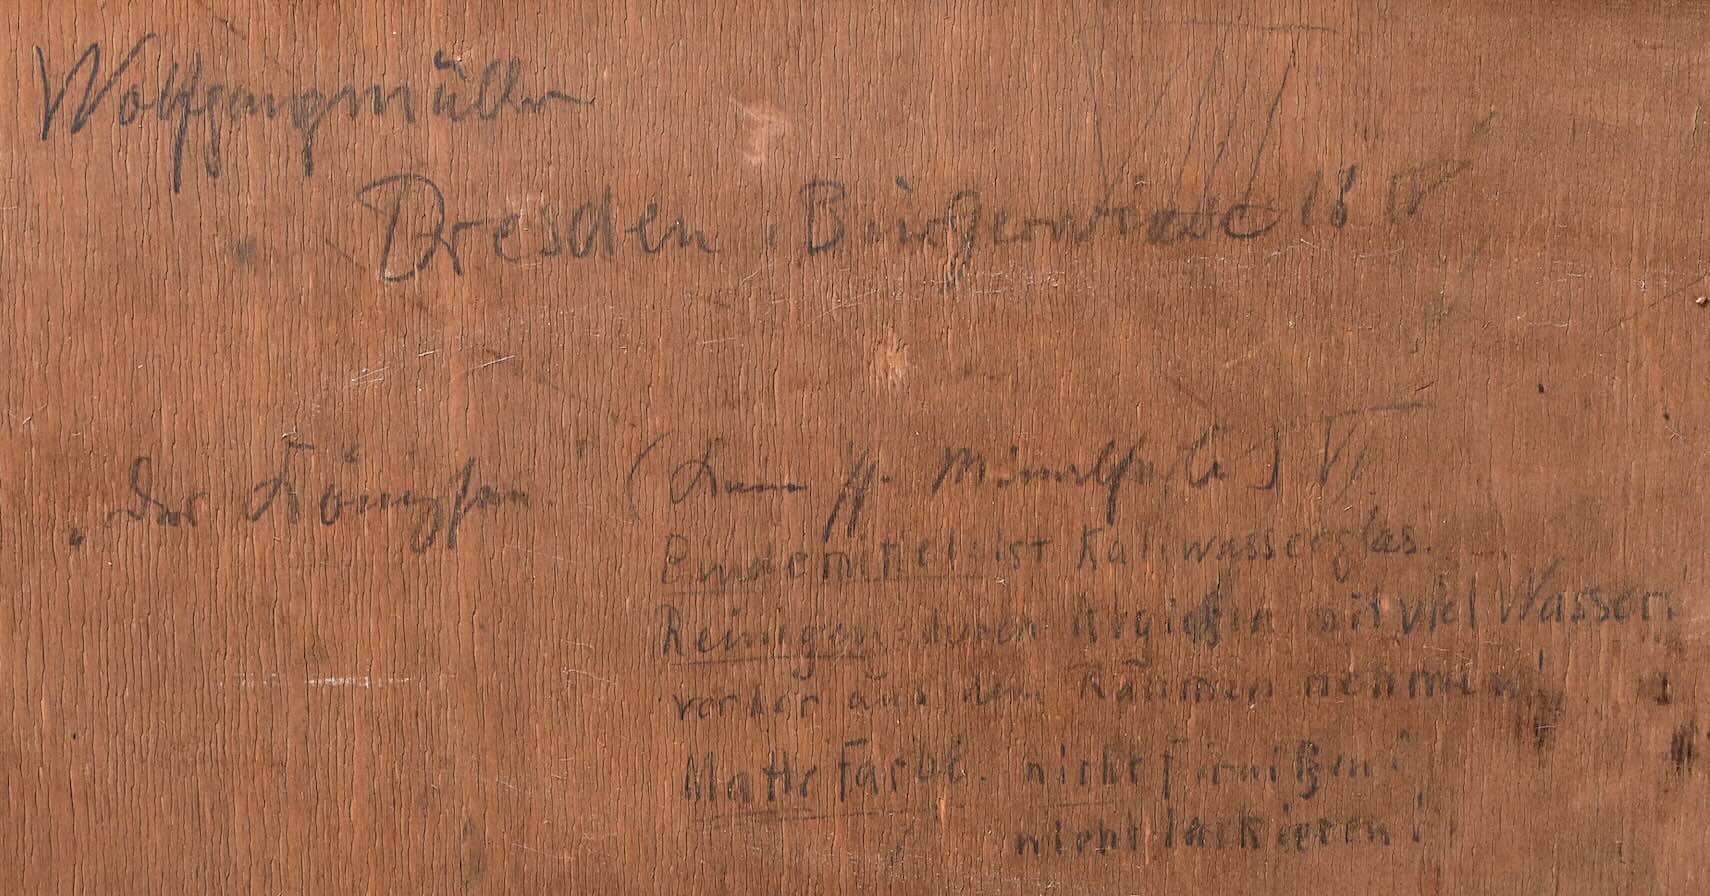 Wolfgangmüller
Dresden, Bürgerwiese 18 IV
„Der Königssohn" ( Mineralfarbe ) VI
Bindemittel ist Kaliwasserglas.
Reinigen: durch mit viel Wasser.
vorher aus dem Rahmen nehmen!
Matte Farbe. nicht firnißen!
nicht lackieren!